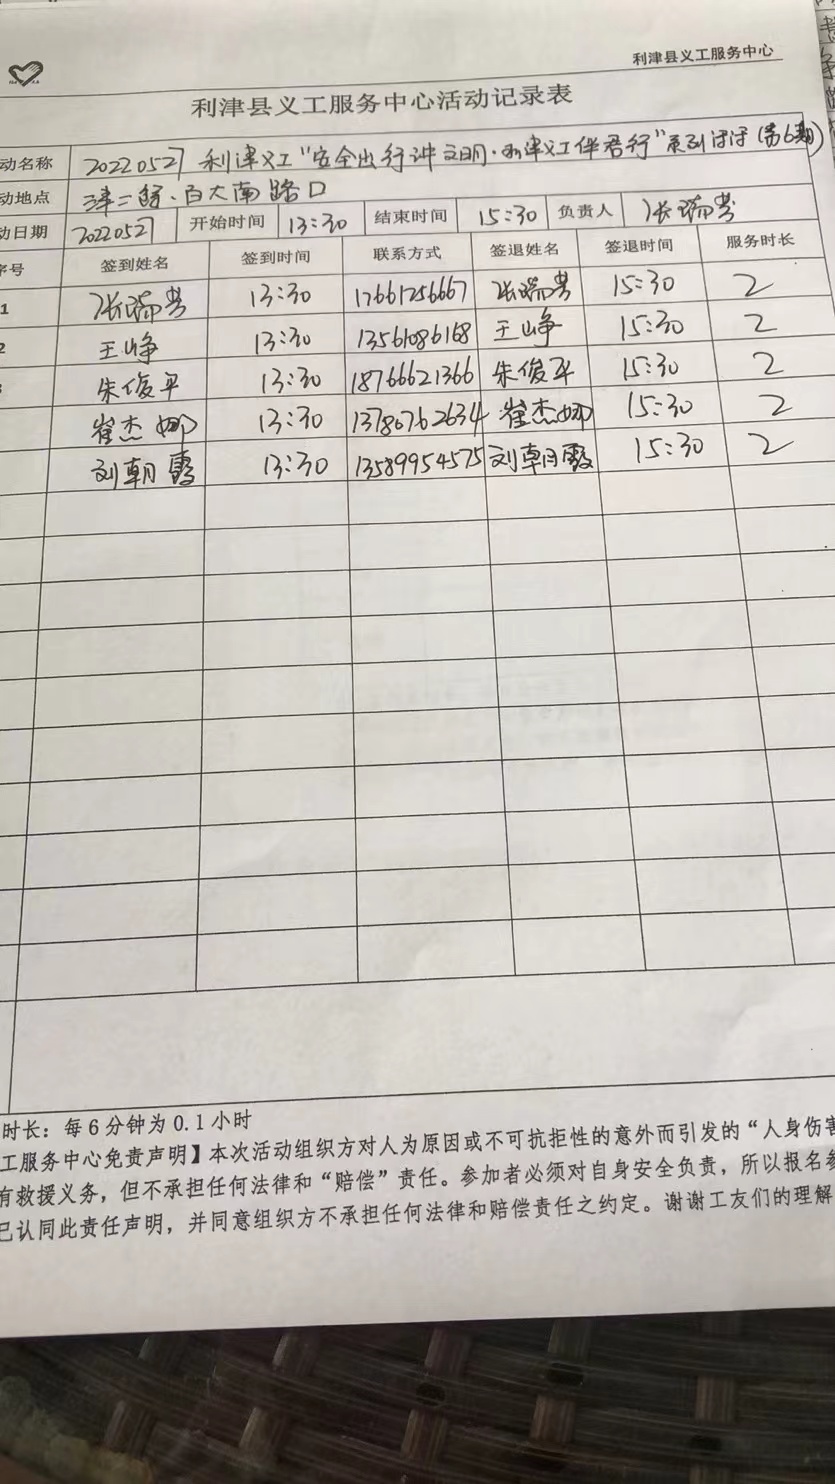 利津县义工服务中心
利津县义工服务中心活动记录表
动名称 20220527 利津义工"安全出行讲文明·利津义工伴君行"系列活动(第6期)
动地点 津二路·百大南路口
动日期 20220527 开始时间 13:30 结束时间 15:30 负责人 张瑞芳
序号 签到姓名 签到时间 联系方式 签退姓名 签退时间 服务时长
1 张瑞芳 13:30 17661256667 张瑞芳 15:30 2
2 王峥 13:30 13561086168 王峥 15:30 2
朱俊平 13:30 18766621366 朱俊平 15:30 2
崔杰娜 13:30 13780762634 崔杰娜 15:30 2
刘朝霞 13:30 13589954575 刘朝霞 15:30 2
时长：每6分钟为0.1小时
工服务中心免责声明】本次活动组织方对人为原因或不可抗拒性的意外而引发的“人身伤害
有救援义务，但不承担任何法律和“赔偿”责任。参加者必须对自身安全负责，所以报名参
已认同此责任声明，并同意组织方不承担任何法律和赔偿责任之约定。谢谢工友们的理解